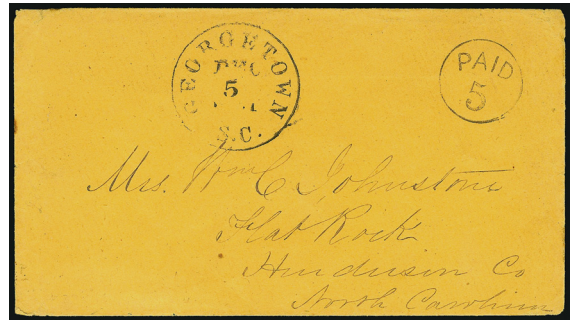 GEORGETOWN
DEC
5
S.C.
PAID
5
Mrs. Wm C Johnstone
Flat Rock
Henderson Co
North Carolina